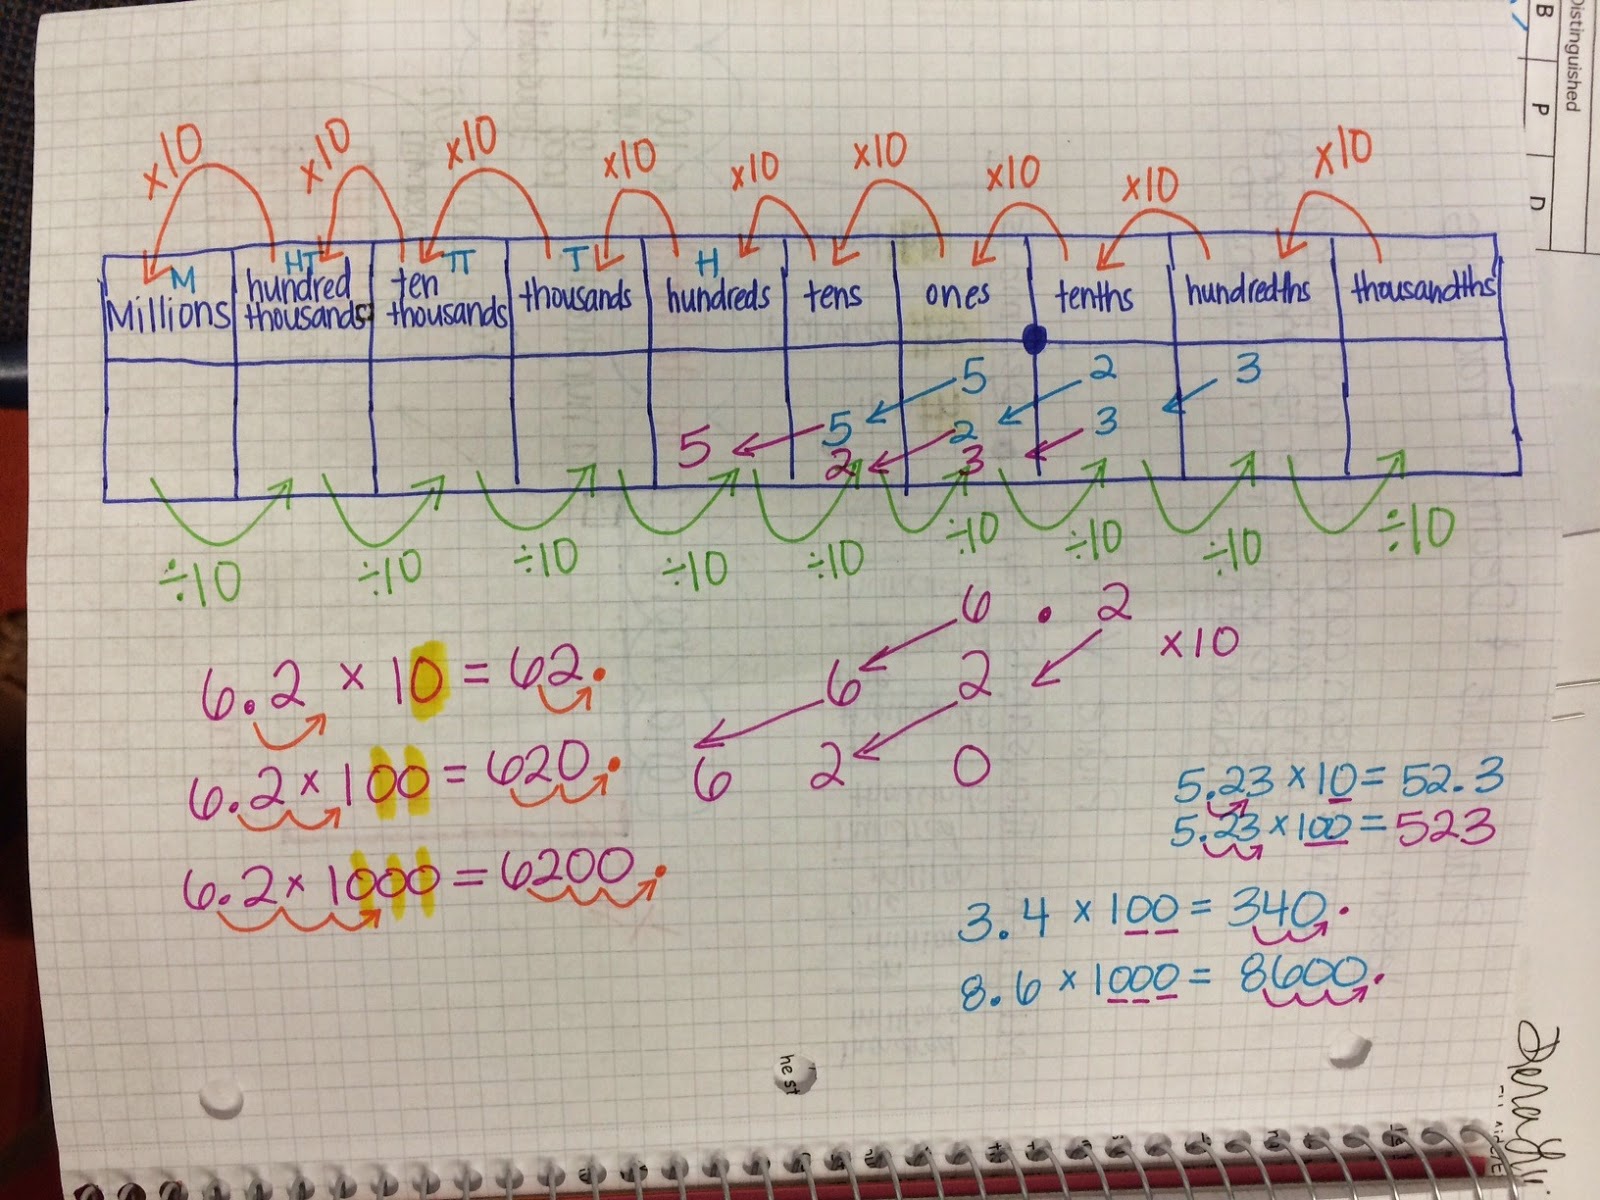 Distinguished
B P D
×10 ×10 ×10 ×10 ×10 ×10 ×10 ×10 ×10
M HT TT T H
Millions hundred thousands ten thousands thousands hundreds tens ones tenths hundredths thousandths
5 2 3
5 2 3
5 2 3
÷10 ÷10 ÷10 ÷10 ÷10 ÷10 ÷10 ÷10 ÷10
6 . 2
×10
6 2
6 2 0
6.2 × 10 = 62.
6.2 × 100 = 620.
6.2 × 1000 = 6200.
5.23 × 10 = 52.3
5.23 × 100 = 523
3.4 × 100 = 340.
8.6 × 1000 = 8600.
he st